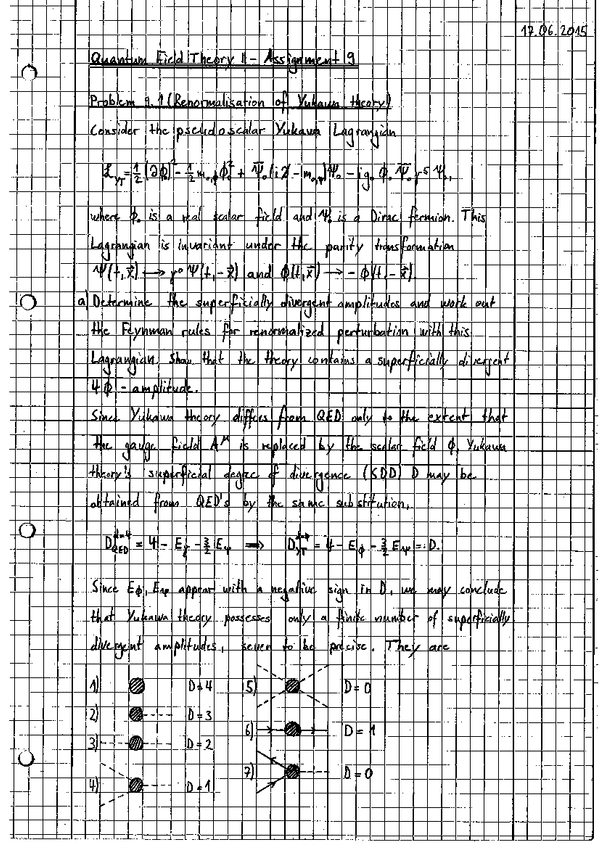 17.06.2015
Quantum Field Theory II - Assignment 9
Problem 9.1 (Renormalisation of Yukawa theory)
Consider the pseudoscalar Yukawa Lagrangian
ℒ_YT = 1/2 (∂ϕ₀)² - 1/2 m₀,ϕ² ϕ₀² + Ψ̄₀(i∂̸ - m₀,Ψ)Ψ₀ - i g₀ ϕ₀ Ψ̄₀ γ⁵ Ψ₀,
where ϕ₀ is a real scalar field and Ψ₀ is a Dirac fermion. This
Lagrangian is invariant under the parity transformation
Ψ(t,x⃗) → γ⁰ Ψ(t,-x⃗) and ϕ(t,x⃗) → -ϕ(t,-x⃗)
a) Determine the superficially divergent amplitudes and work out
the Feynman rules for renormalized perturbation with this
Lagrangian. Show that the theory contains a superficially divergent
4ϕ-amplitude.
Since Yukawa theory differs from QED only to the extent that
the gauge field A^μ is replaced by the scalar field ϕ, Yukawa
theory's superficial degree of divergence (SDD) D may be
obtained from QED's by the same substitution,
D_QED^{d=4} = 4 - E_γ - 3/2 E_Ψ ⟹ D_YT^{d=4} = 4 - E_ϕ - 3/2 E_Ψ =: D.
Since E_ϕ, E_Ψ appear with a negative sign in D, we may conclude
that Yukawa theory possesses only a finite number of superficially
divergent amplitudes, seven to be precise. They are
1) D=4 5) D=0
2) D=3
3) D=2 6) D=1
4) D=1 7) D=0